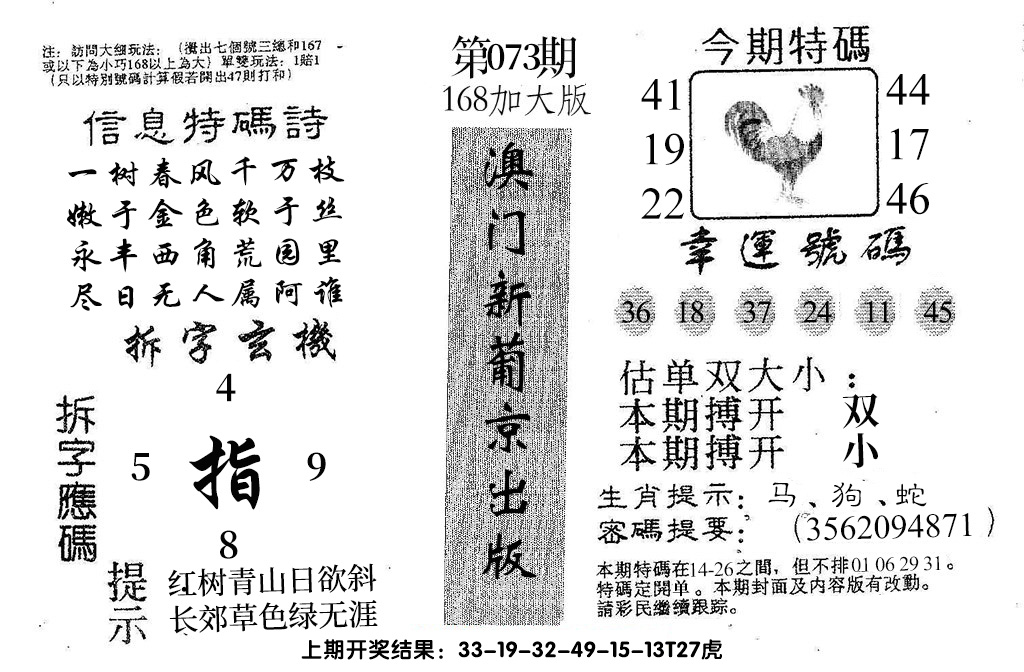 注：訪問大细玩法：（攪出七個號三總和167
或以下為小巧168以上為大）單雙玩法：1賠1
（只以特別號碼計算假若開出47則打和）
信息特碼詩
一树春风千万枝
嫩于金色软于丝
永丰西角荒园里
尽日无人属阿谁
拆字玄機
拆字應碼
4
5 指 9
8
提示
红树青山日欲斜
长郊草色绿无涯
第073期
168加大版
澳门新葡京出版
今期特碼
41 44
19 17
22 46
幸運號碼
36 18 37 24 11 45
估单双大小：
本期搏开 双
本期搏开 小
生肖提示：马、狗、蛇
密碼提要：（3562094871）
本期特碼在14-26之間，但不排01 06 29 31。
特碼定開单。本期封面及内容版有改動。
請彩民繼續跟踪。
上期开奖结果：33-19-32-49-15-13T27虎